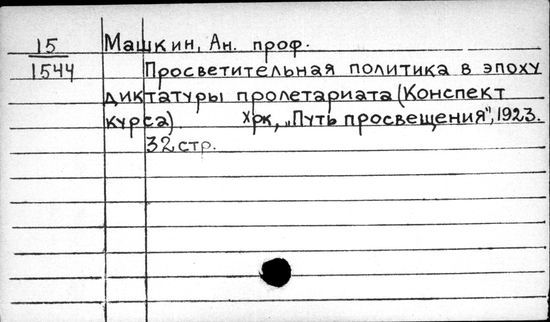 15 Машкин, Ан. проф.
1544 Просветительная политика в эпоху
диктатуры пролетариата (Конспект
курса). Хрк, „Путь просвещения", 1923.
32 стр.